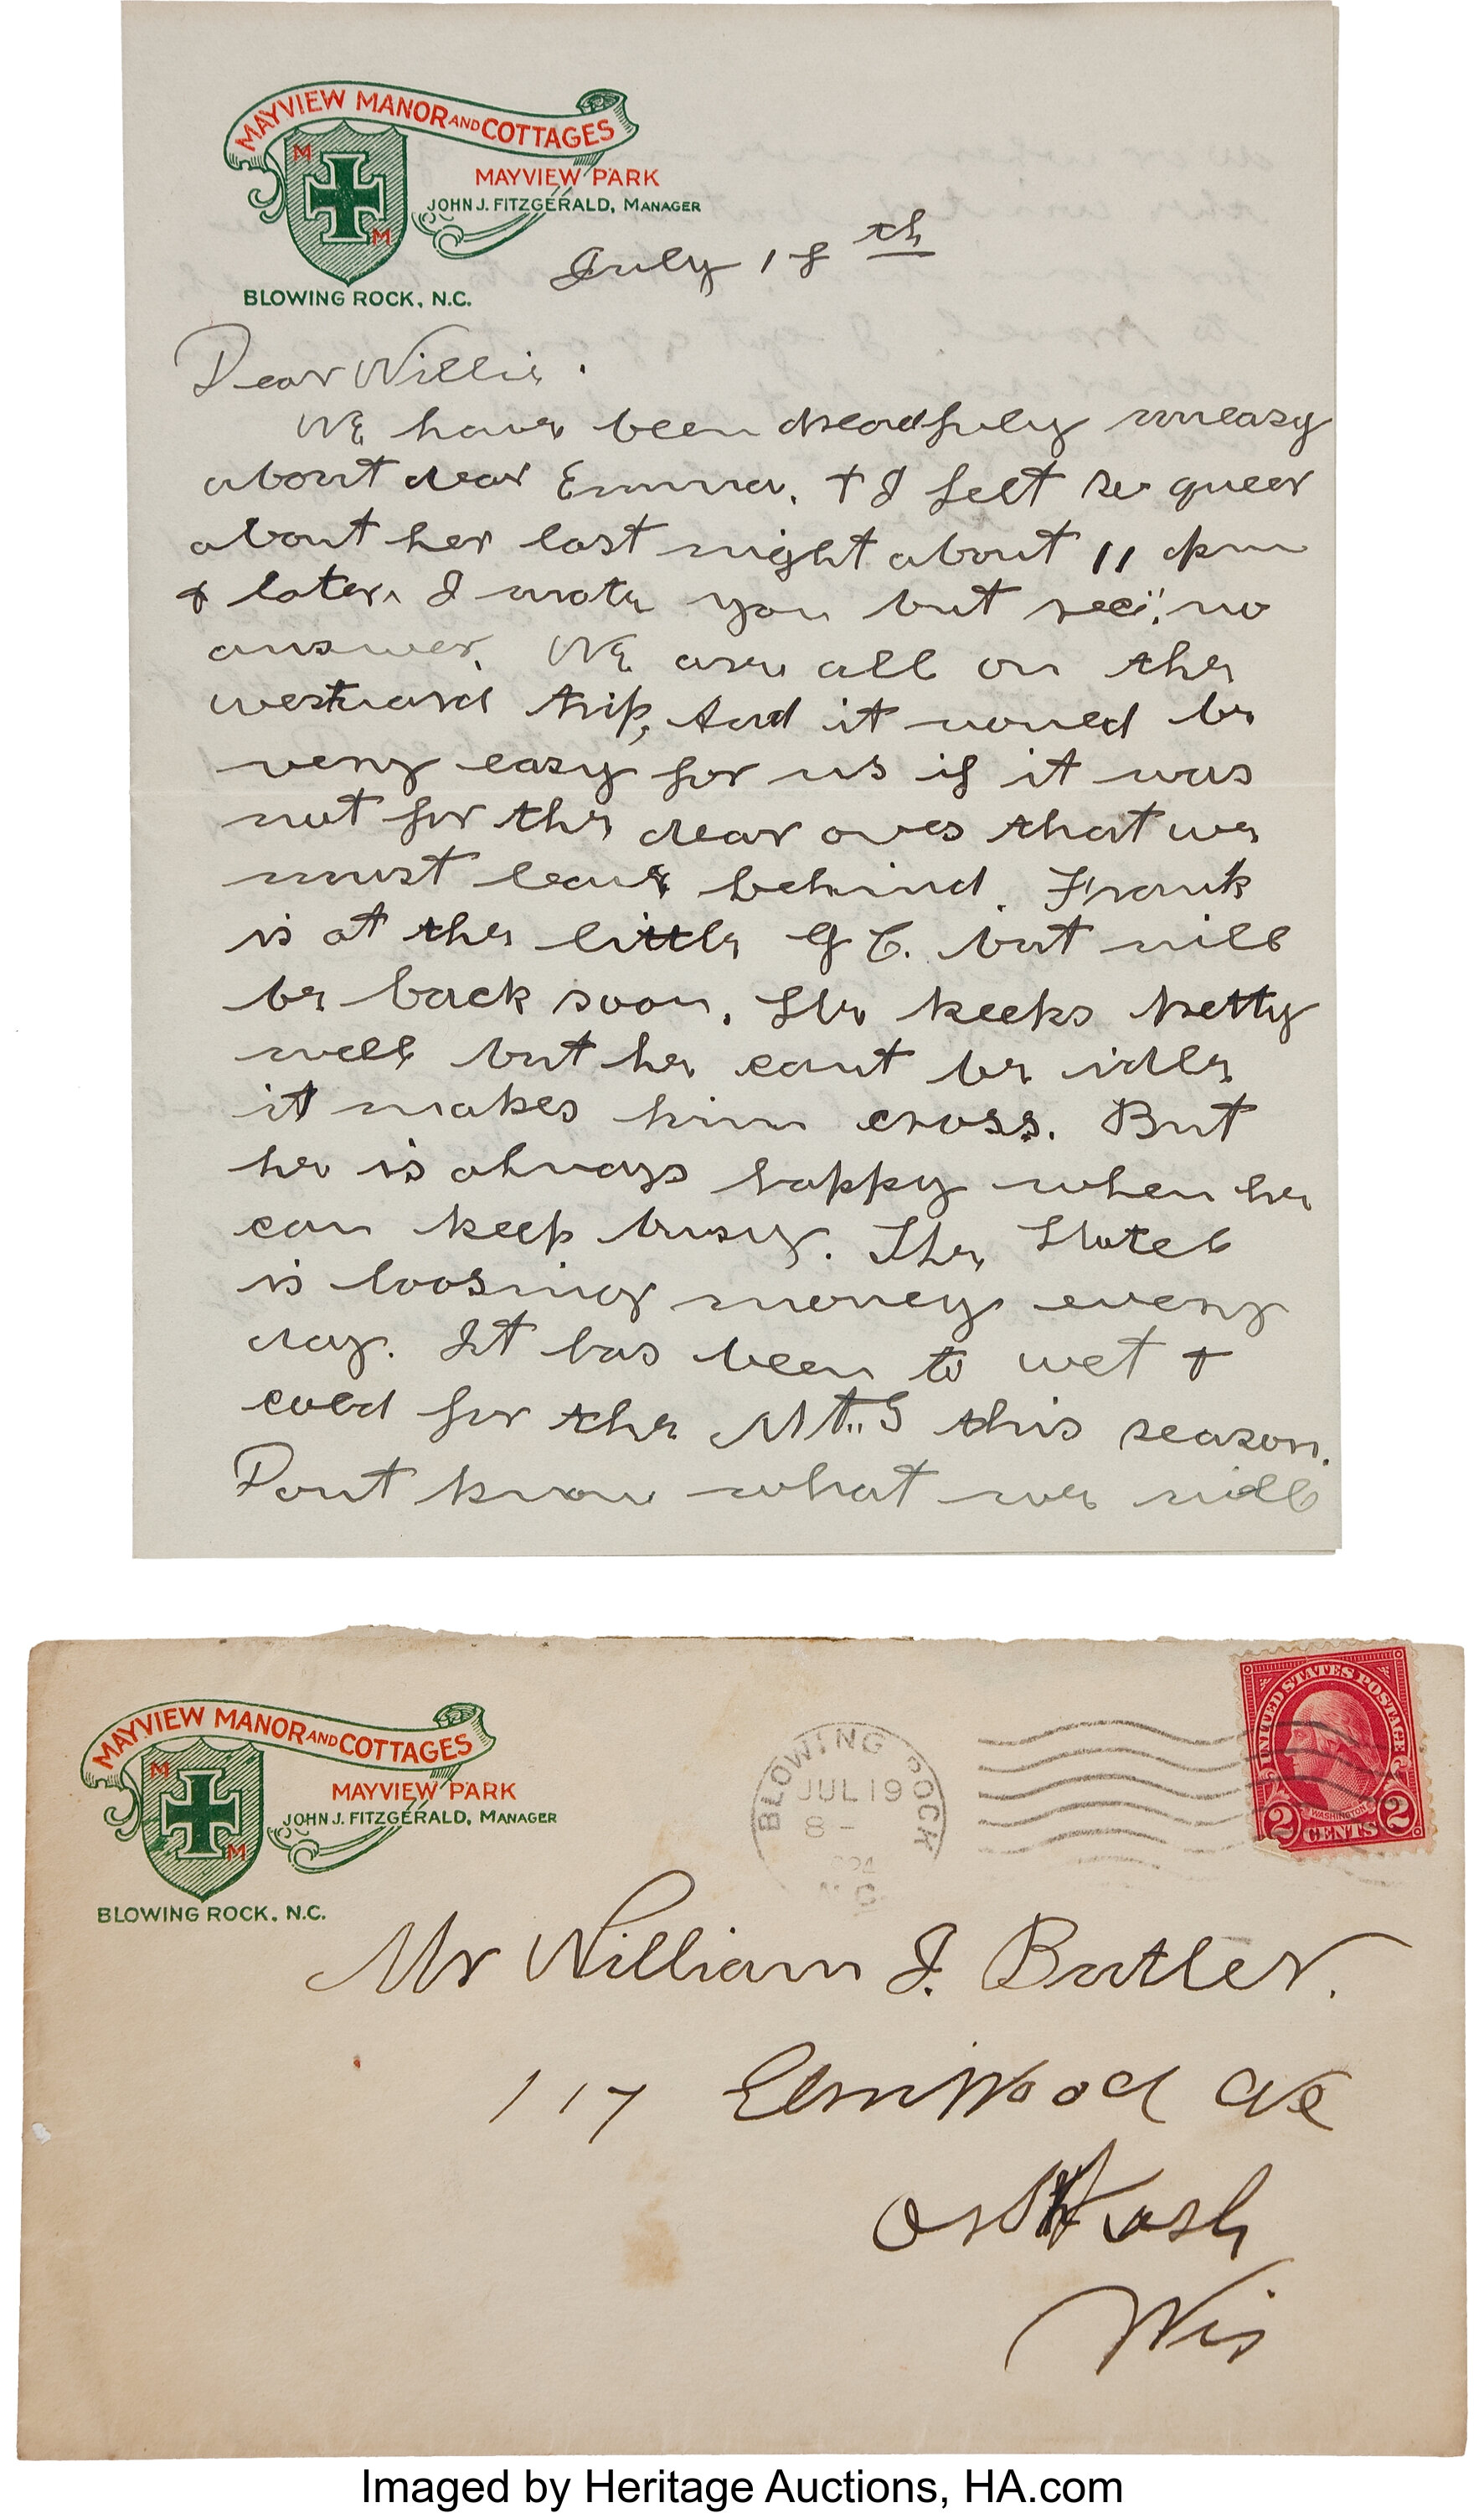 MAYVIEW MANOR AND COTTAGES
M
MAYVIEW PARK
JOHN J. FITZGERALD, MANAGER
M
BLOWING ROCK, N.C.
July 18th
Dear Willie.
We have been dreadfuly uneasy
about dear Emma. + I felt so queer
about her last night about 11 pm
+ later. I wrote you but rec'; no
answer. We are all on the
westward trip, And it would be
very easy for us if it was
not for the dear ones that we
must leave behind. Frank
is at the little G C. but will
be back soon. He keeps pretty
well but he cant be idle
it makes him cross. But
he is always happy when he
can keep busy. The Hotel
is loosing money every
day. It has been to wet +
cold for the Mt.s this season.
Dont know what we will
MAYVIEW MANOR AND COTTAGES
M
MAYVIEW PARK
JOHN J. FITZGERALD, MANAGER
M
BLOWING ROCK, N.C.
BLOWING ROCK
JUL 19
8 -
N.C.
UNITED STATES POSTAGE
WASHINGTON
2 CENTS 2
Mr William J. Butler.
117 Elmwood Ave
Oshkosh
Wis
Imaged by Heritage Auctions, HA.com